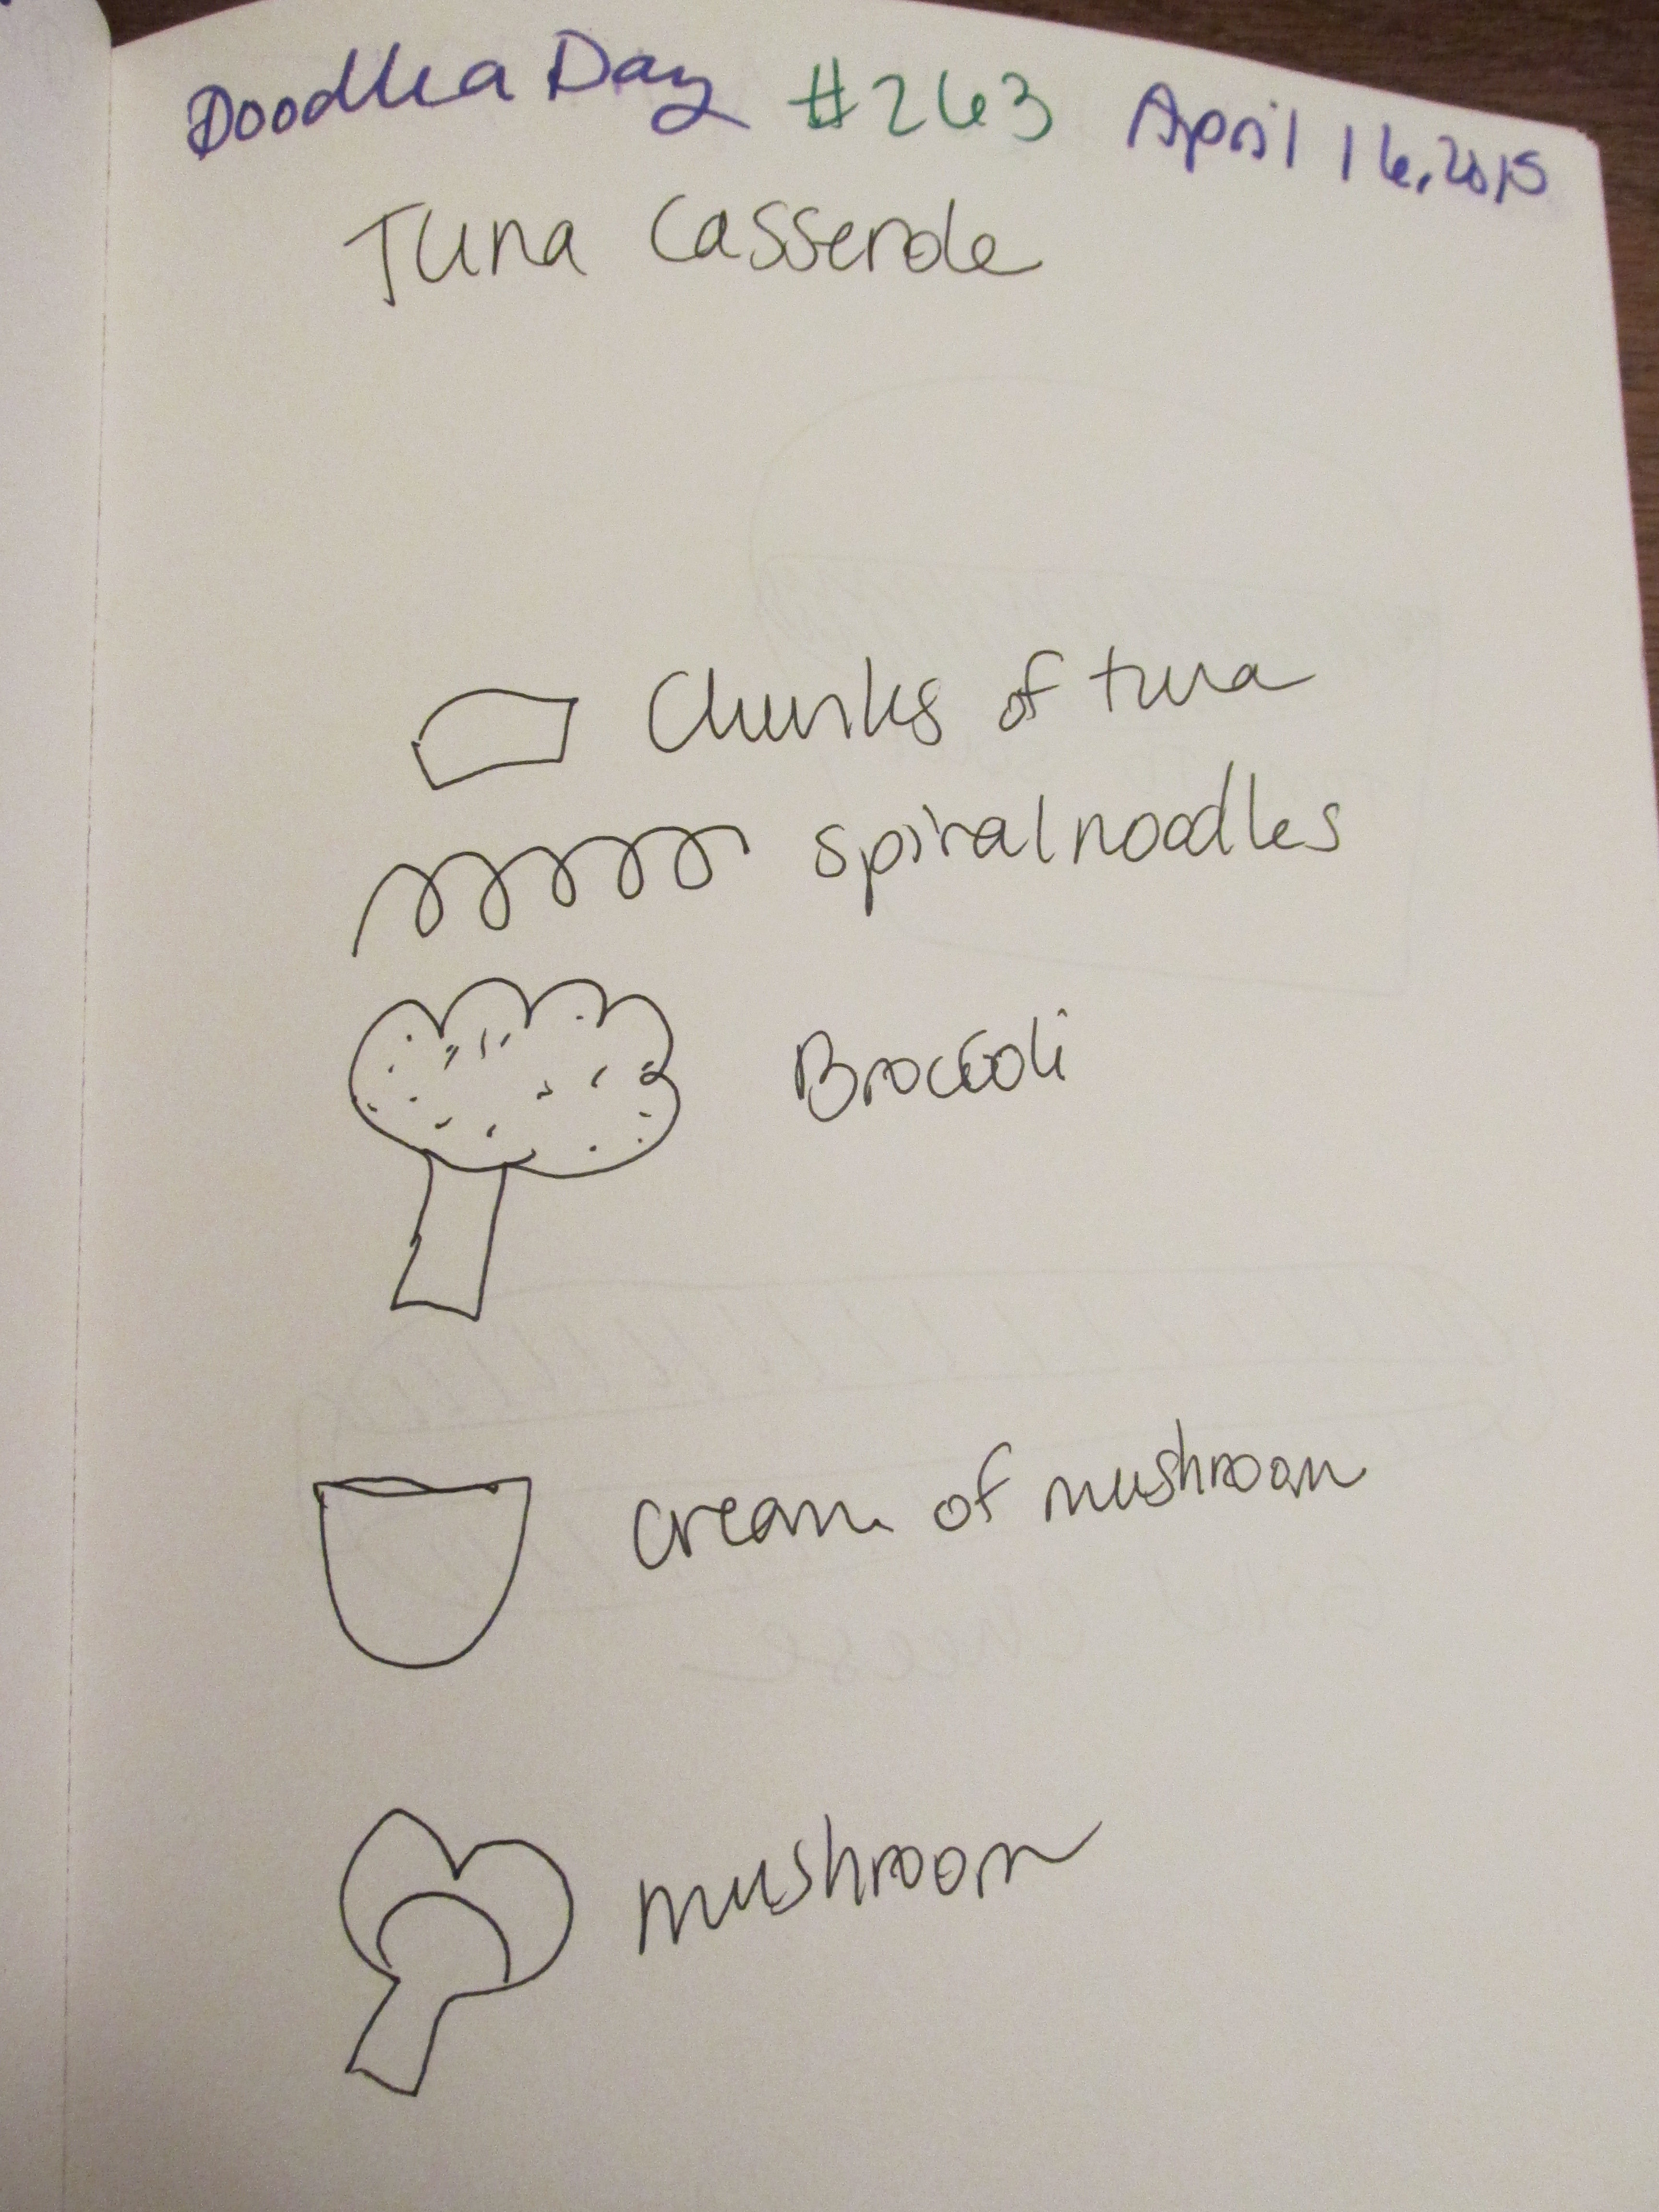 Doodle a Day #263 April 16, 2015
Tuna Casserole
Chunks of tuna
spiral noodles
Broccoli
cream of mushroom
mushroom